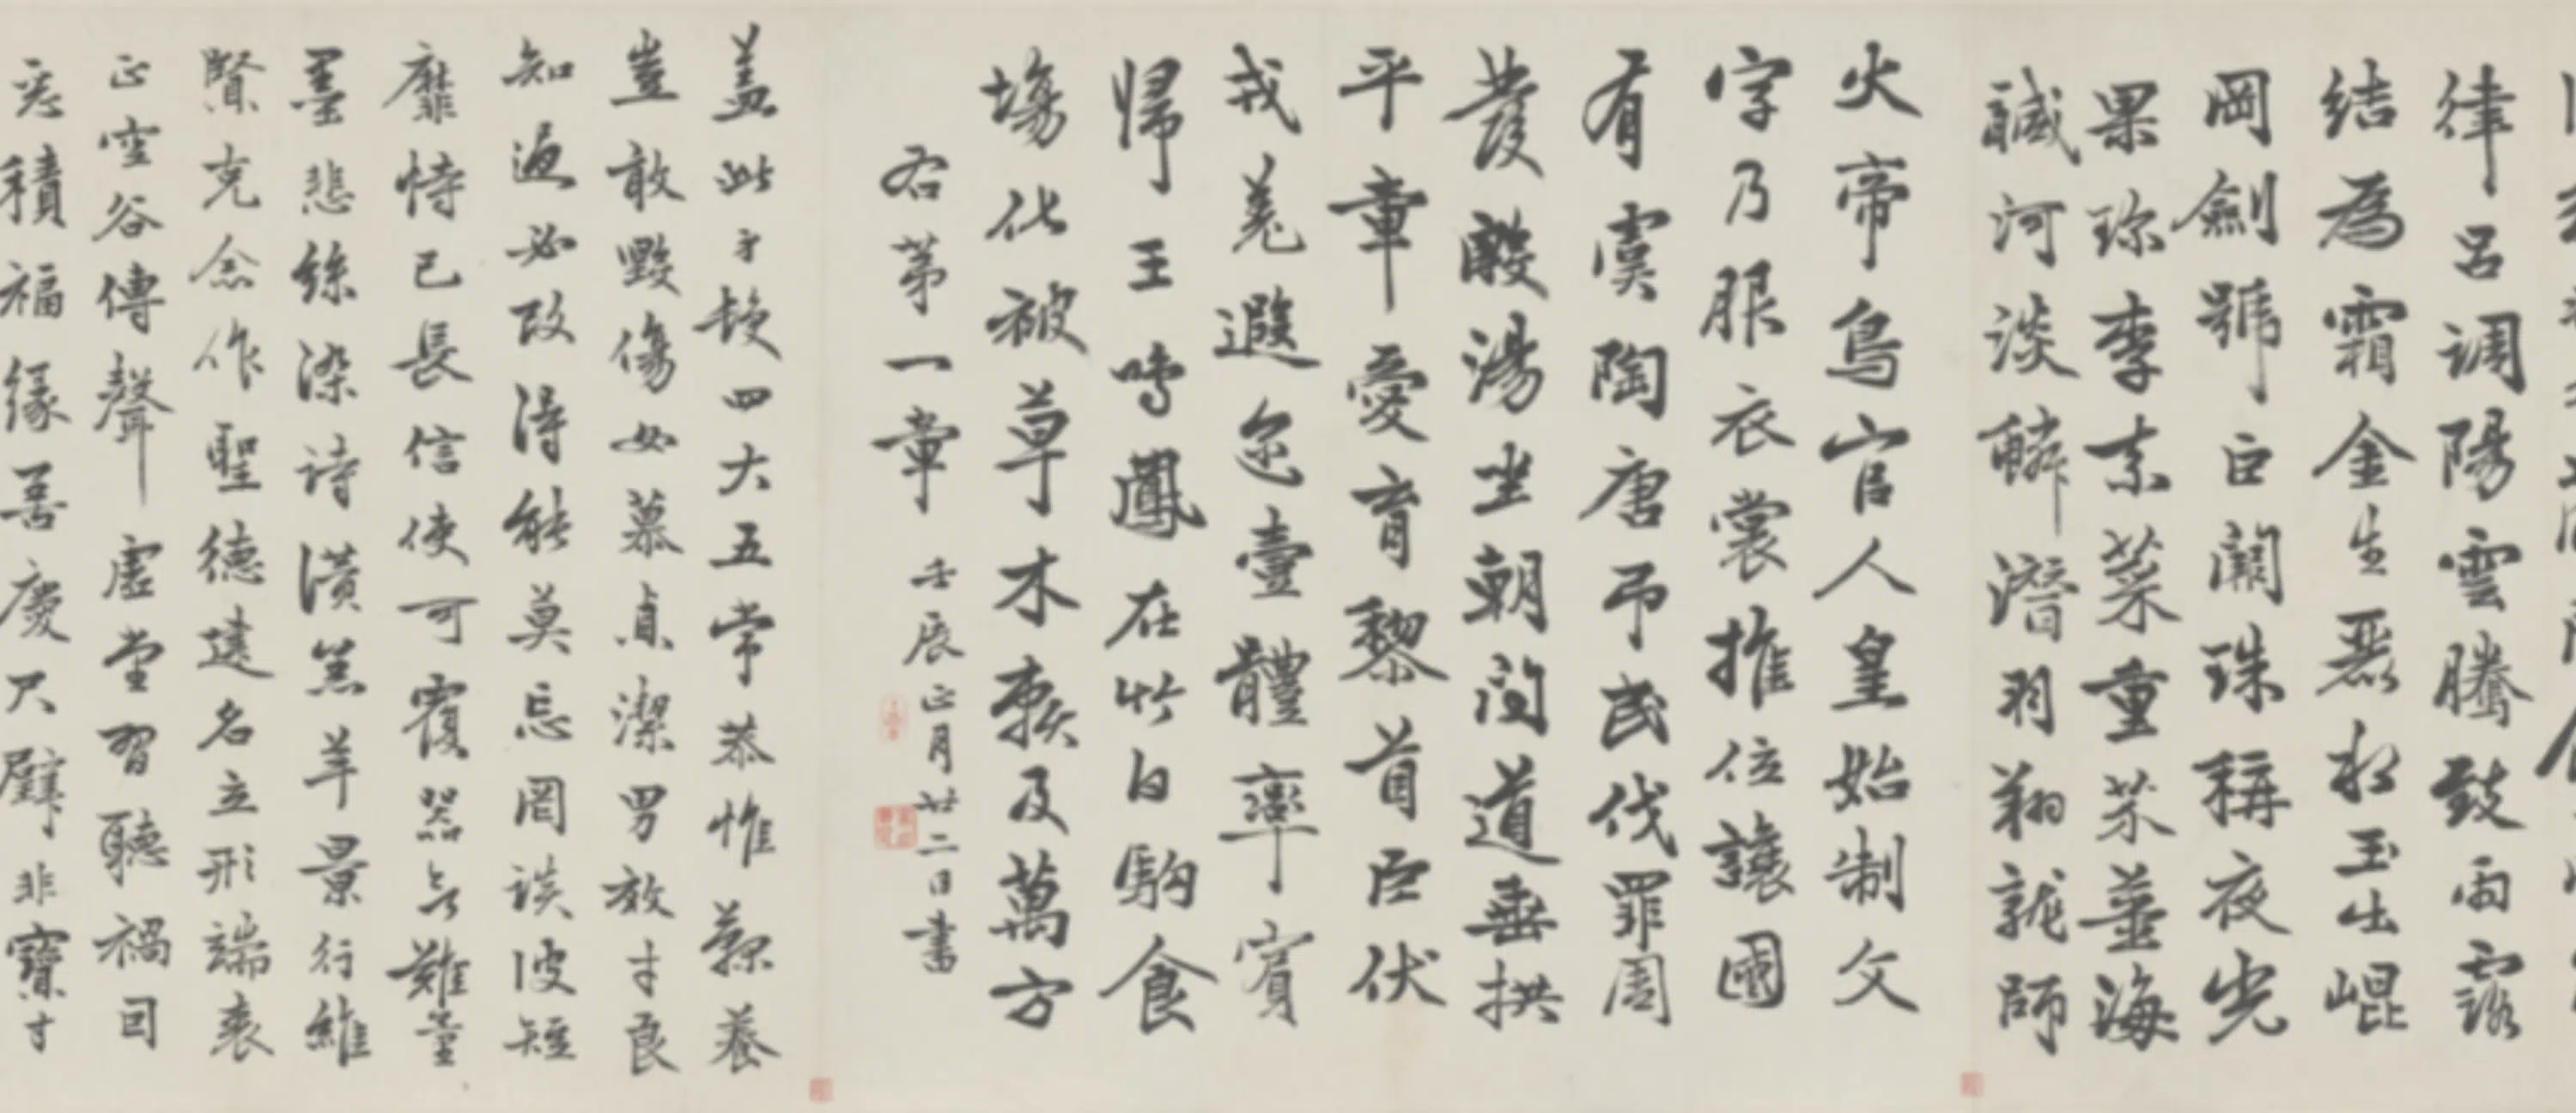 律呂調陽雲騰致雨露
結為霜金生麗水玉出崐
岡劍號巨闕珠稱夜光
果珍李柰菜重芥薑海
鹹河淡鱗潛羽翔龍師
火帝鳥官人皇始制文
字乃服衣裳推位讓國
有虞陶唐弔民伐罪周
發殷湯坐朝問道垂拱
平章愛育黎首臣伏
戎羌遐邇壹體率賓
歸王鳴鳳在竹白駒食
場化被草木賴及萬方
右第一章 壬辰正月廿二日書
蓋此身髮四大五常恭惟鞠養
豈敢毀傷女慕貞潔男效才良
知過必改得能莫忘罔談彼短
靡恃己長信使可覆器欲難量
墨悲絲染詩讚羔羊景行維
賢克念作聖德建名立形端表
正空谷傳聲虛堂習聽禍因
惡積福緣善慶尺璧非寶寸